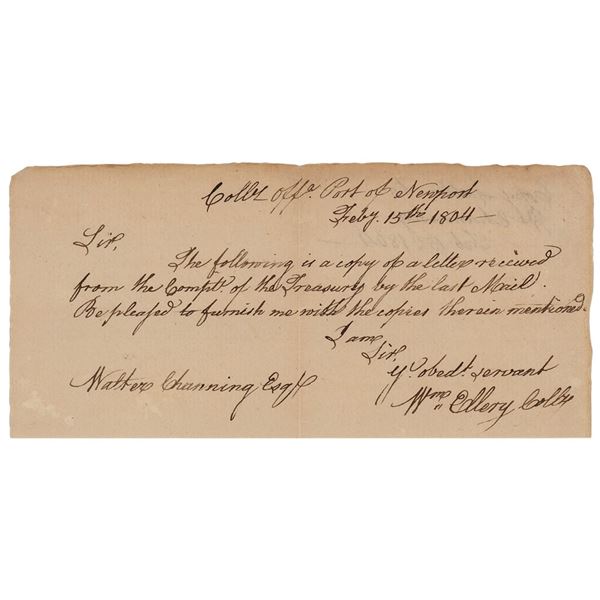 Collrs Offe. Port of Newport
Feby. 15th 1804 —
Sir,
The following is a copy of a letter received
from the Comptr. of the Treasury by the last Mail.
Be pleased to furnish me with the copies therein mentioned.
I am
Sir,
yr. obedt. servant
Walter Channing Esqr
Wm Ellery Collr